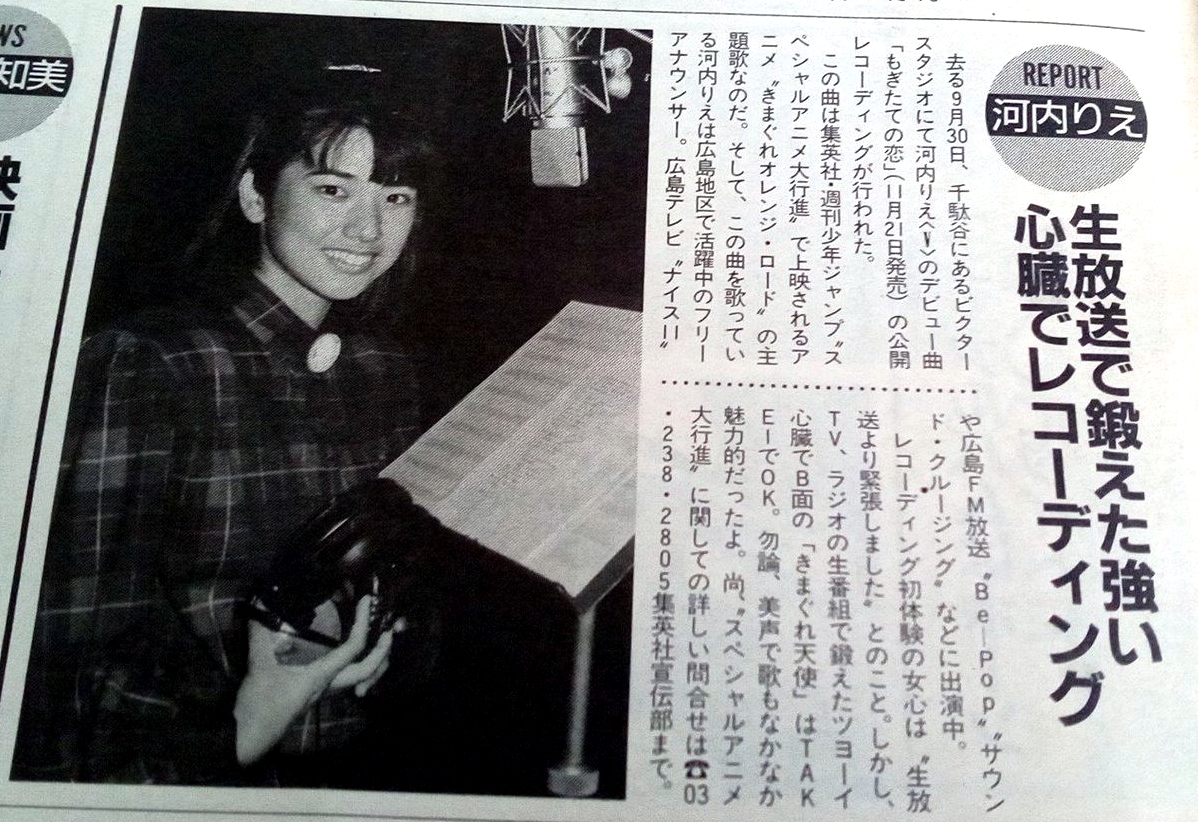 REPORT
河内りえ
生放送で鍛えた強い
心臓でレコーディング
去る9月30日、千駄谷にあるビクター
スタジオにて河内りえ〈V〉のデビュー曲
「もぎたての恋」(11月21日発売)の公開
レコーディングが行われた。
この曲は集英社・週刊少年ジャンプ〝ス
ペシャルアニメ大行進〟で上映されるア
ニメ〝きまぐれオレンジ・ロード〟の主
題歌なのだ。そして、この曲を歌ってい
る河内りえは広島地区で活躍中のフリー
アナウンサー。広島テレビ〝ナイス!!〟
や広島FM放送〝Be-Pop〟〝サウン
ド・クルージング〟などに出演中。
レコーディング初体験の女心は〝生放
送より緊張しました〟とのこと。しかし、
TV、ラジオの生番組で鍛えたツヨーイ
心臓でB面の「きまぐれ天使」はTAK
E1でOK。勿論、美声で歌もなかなか
魅力的だったよ。尚、〝スペシャルアニメ
大行進〟に関しての詳しい問合せは☎03
・238・2805集英社宣伝部まで。
WS
知美
映画